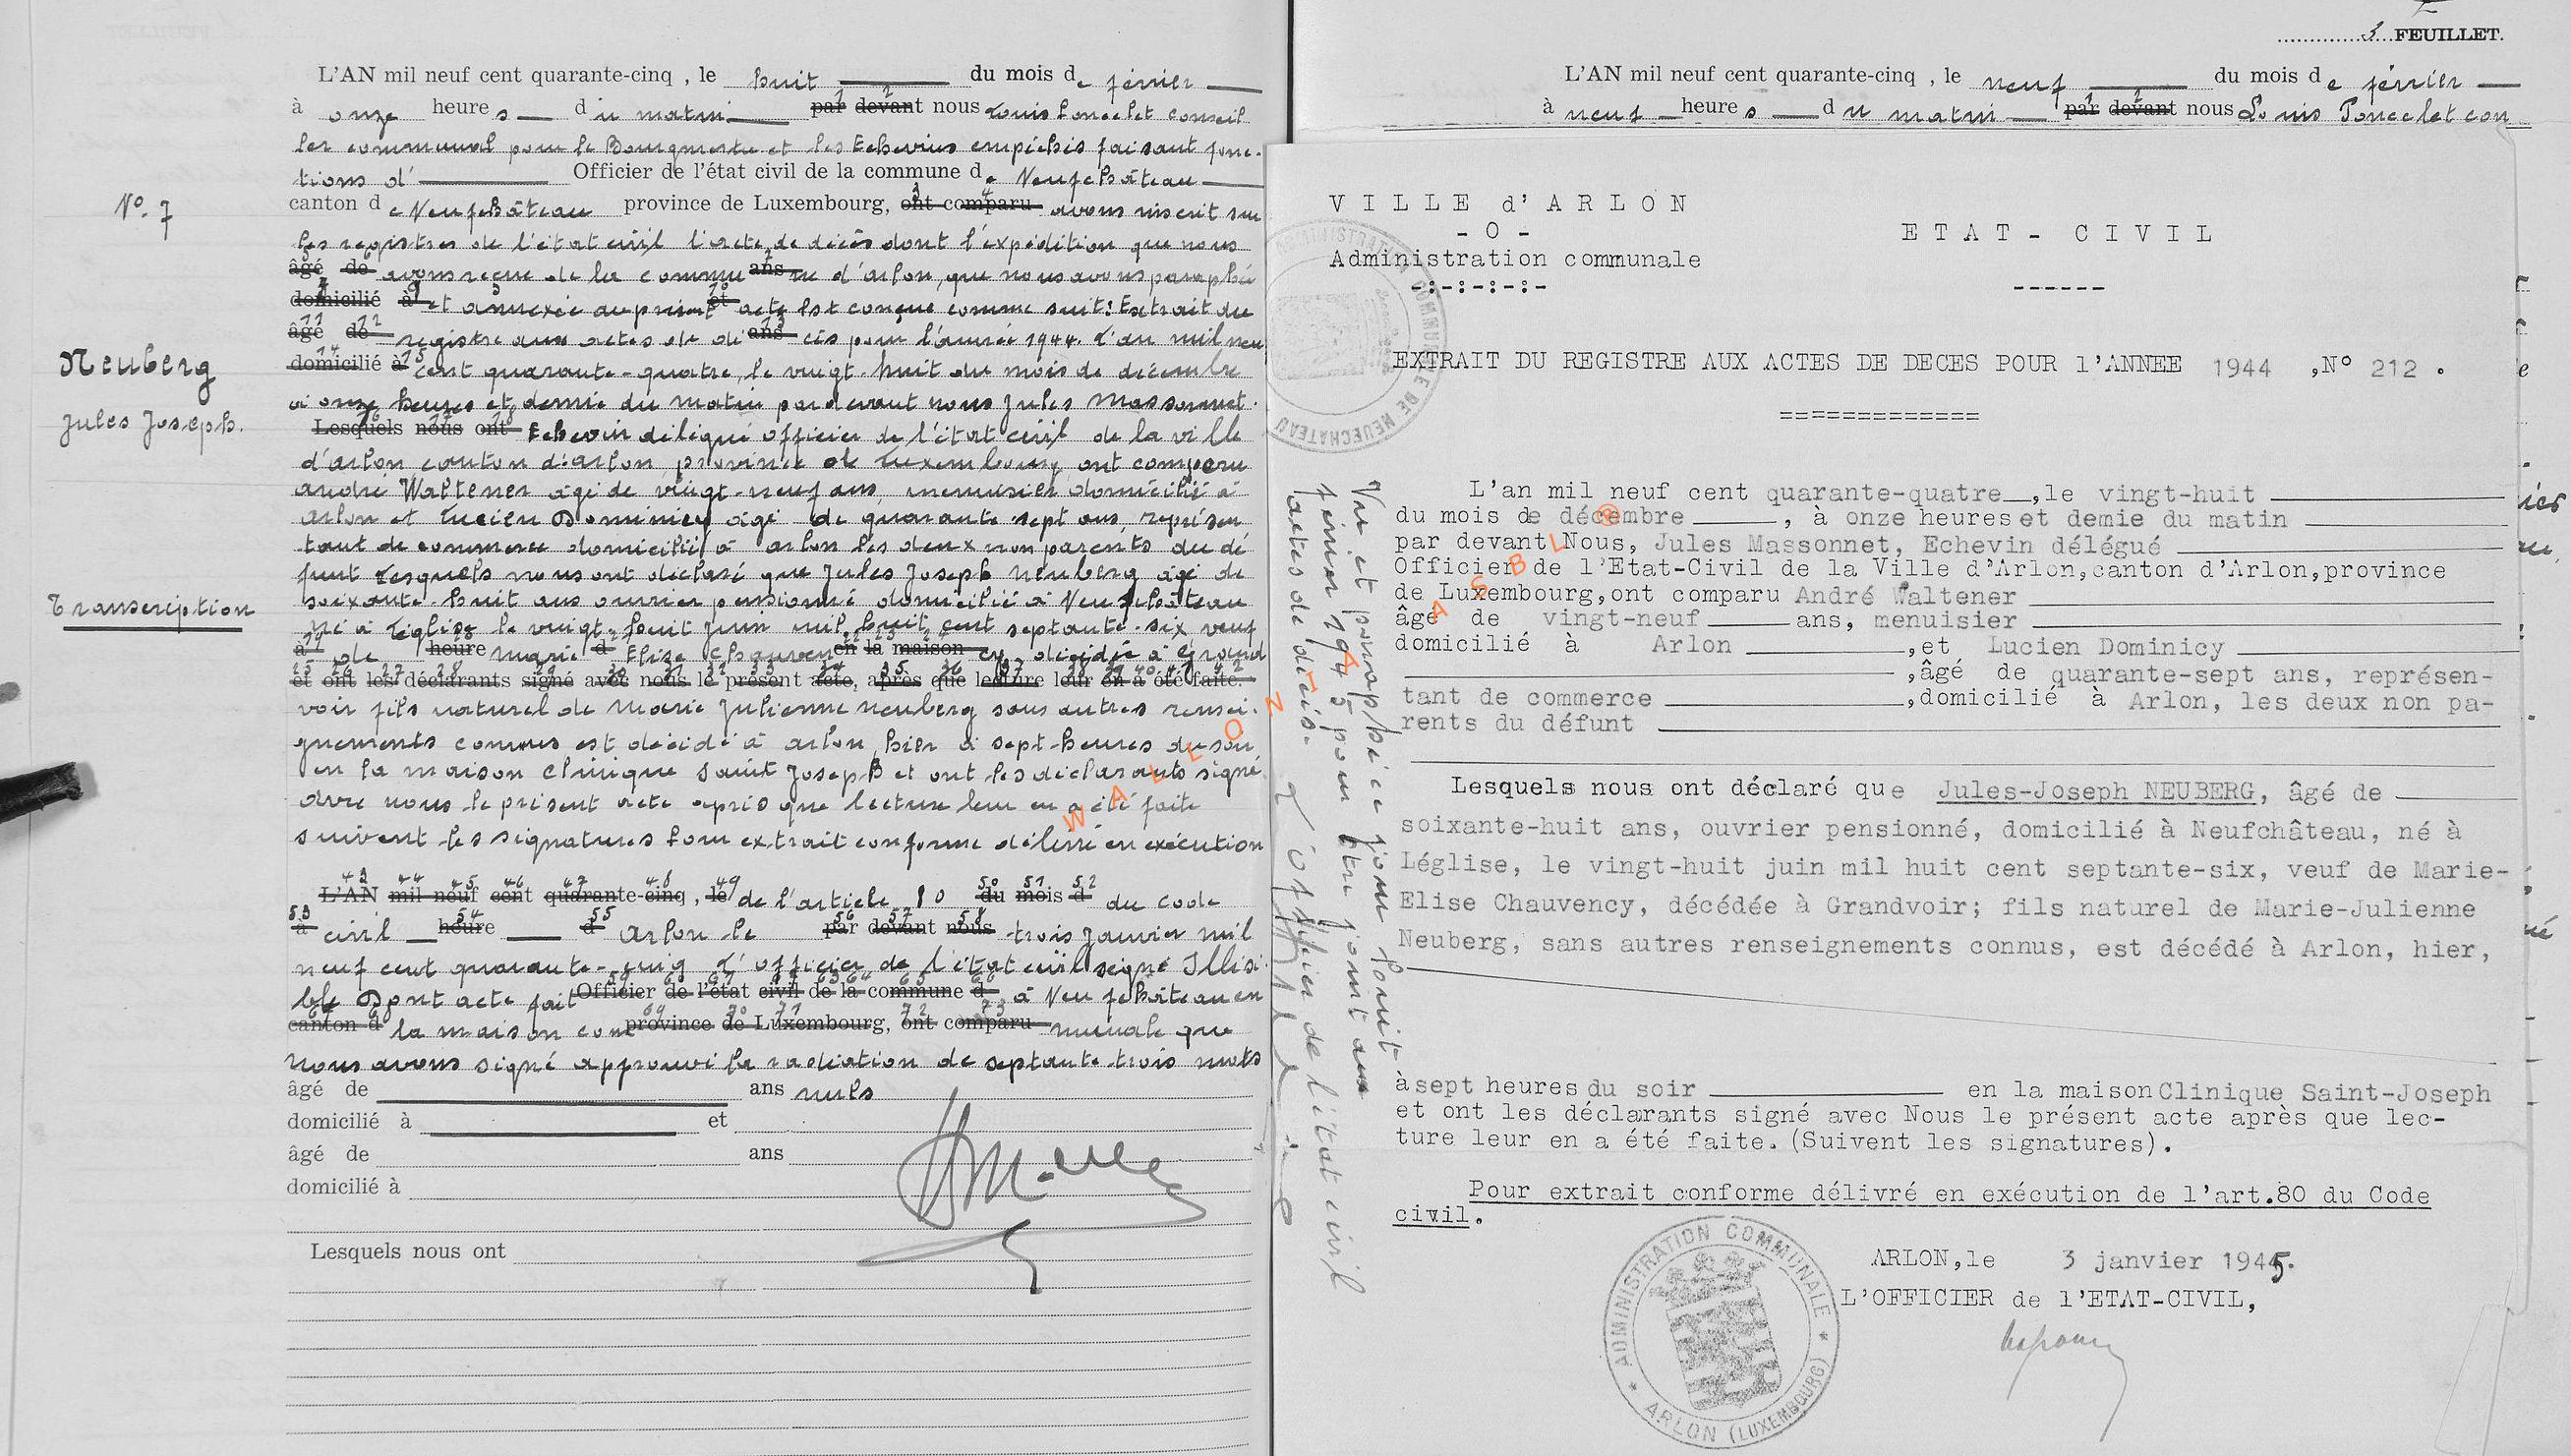 L'AN mil neuf cent quarante-cinq , le huit du mois de février
à onze heures du matin par devant nous Louis Poncelet conseil
ler communal pour le Bourgmestre et les Echevins empêchés faisant fonc-
tions d' Officier de l'état civil de la commune de Neufchâteau
N°. 7
canton de Neufchâteau province de Luxembourg, ont comparu avons inscrit sur
les registres de l'état civil l'acte de décès dont l'expédition que nous
âgé de avons reçue de la commu ans ne d'arlon, que nous avons paraphée
domicilié à et annexée au présent et acte est conçue comme suit: Extrait du
âgé de registre aux actes de dé ans cès pour l'année 1944. L'an mil neu
Neuberg
Jules Joseph.
domicilié à cent quarante-quatre, le vingt-huit du mois de décembre
à onze heures et demie du matin par devant nous Jules Massonnet.
Lesquels nous ont Echevin délégué officier de l'état civil de la ville
d'arlon canton d'arlon province de Luxembourg ont comparu
andré Waltener âgé de vingt-neuf ans, menuisier domicilié à
arlon et Lucien Dominicy âgé de quarante sept ans, représen
tant de commerce domicilié à arlon les deux non parents du dé
funt Lesquels nous ont déclaré que Jules Joseph Neuberg âgé de
Transcription
soixante-huit ans ouvrier pensionné domicilié à Neufchâteau
né à Léglise le vingt-huit juin mil huit cent septante-six veuf
à de heure Marie d Elise Chauven en la maison cy décédée à Grand
et ont les déclarants signé avec nous le présent acte, après que lecture leur en a été faite.
voir fils naturel de Marie Julienne Neuberg sans autres rensei-
gnements connus est décédé à arlon, hier à sept-heures du soir
en la maison Clinique Saint Joseph et ont les déclarants signé
avec nous le présent acte après que lecture leur en a été faite
suivent les signatures Pour extrait conforme délivré en exécution
L'AN mil neuf cent quarante-cinq , le de l'article 80 du mois d du code
à civil heure d Arlon le par devant nous trois janvier mil
neuf cent quarante-cinq L'officier de l'état civil signé Illisi
ble Dont acte fait Officier de l'état civil de la commune d à Neufchâteau en
canton d la maison com province de Luxembourg, ont comparu munale que
nous avons signé approuvé la radiation de septante-trois mots
âgé de ans nuls
domicilié à et
âgé de ans
domicilié à
Lesquels nous ont
3 FEUILLET.
L'AN mil neuf cent quarante-cinq , le neuf du mois de février
à neuf heures du matin par devant nous Louis Poncelet con
VILLE d'ARLON
-O-
Administration communale
-:-:-:-:-
ETAT - CIVIL
------
EXTRAIT DU REGISTRE AUX ACTES DE DECES POUR l'ANNEE 1944 ,N° 212 .
=============
L'an mil neuf cent quarante-quatre ,le vingt-huit
du mois de décembre , à onze heures et demie du matin
par devant Nous, Jules Massonnet, Echevin délégué
Officier de l'Etat-Civil de la Ville d'Arlon,canton d'Arlon,province
de Luxembourg,ont comparu André Waltener
âgé de vingt-neuf ans, menuisier
domicilié à Arlon ,et Lucien Dominicy
,âgé de quarante-sept ans, représen-
tant de commerce ,domicilié à Arlon, les deux non pa-
rents du défunt
Lesquels nous ont déclaré que Jules-Joseph NEUBERG, âgé de
soixante-huit ans, ouvrier pensionné, domicilié à Neufchâteau, né à
Léglise, le vingt-huit juin mil huit cent septante-six, veuf de Marie-
Elise Chauvency, décédée à Grandvoir; fils naturel de Marie-Julienne
Neuberg, sans autres renseignements connus, est décédé à Arlon, hier,
à sept heures du soir en la maison Clinique Saint-Joseph
et ont les déclarants signé avec Nous le présent acte après que lec-
ture leur en a été faite.(Suivent les signatures).
Pour extrait conforme délivré en exécution de l'art.80 du Code
civil.
ARLON,le 3 janvier 1945.
L'OFFICIER de l'ETAT-CIVIL,
ADMINISTRATION COMMUNALE
ARLON (LUXEMBOURG)
COMMUNE DE NEUFCHATEAU
Vu et paraphée pour
février 1945 pour être joint aux
actes de décès.
L'officier de l'état civil
WALLONIA ASBL